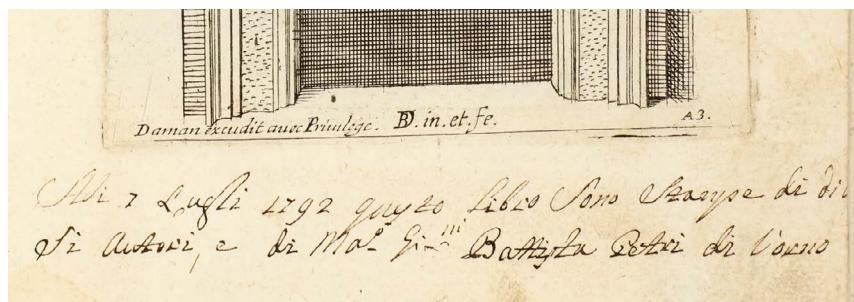 Daman excudit avec Privilege. BD. in. et. fe. A 3.
Adi 7 Lugli 1792 questo Libro Sono Stampe di di
Si Autori, e di Mo. Gi.ni Battista Petri di